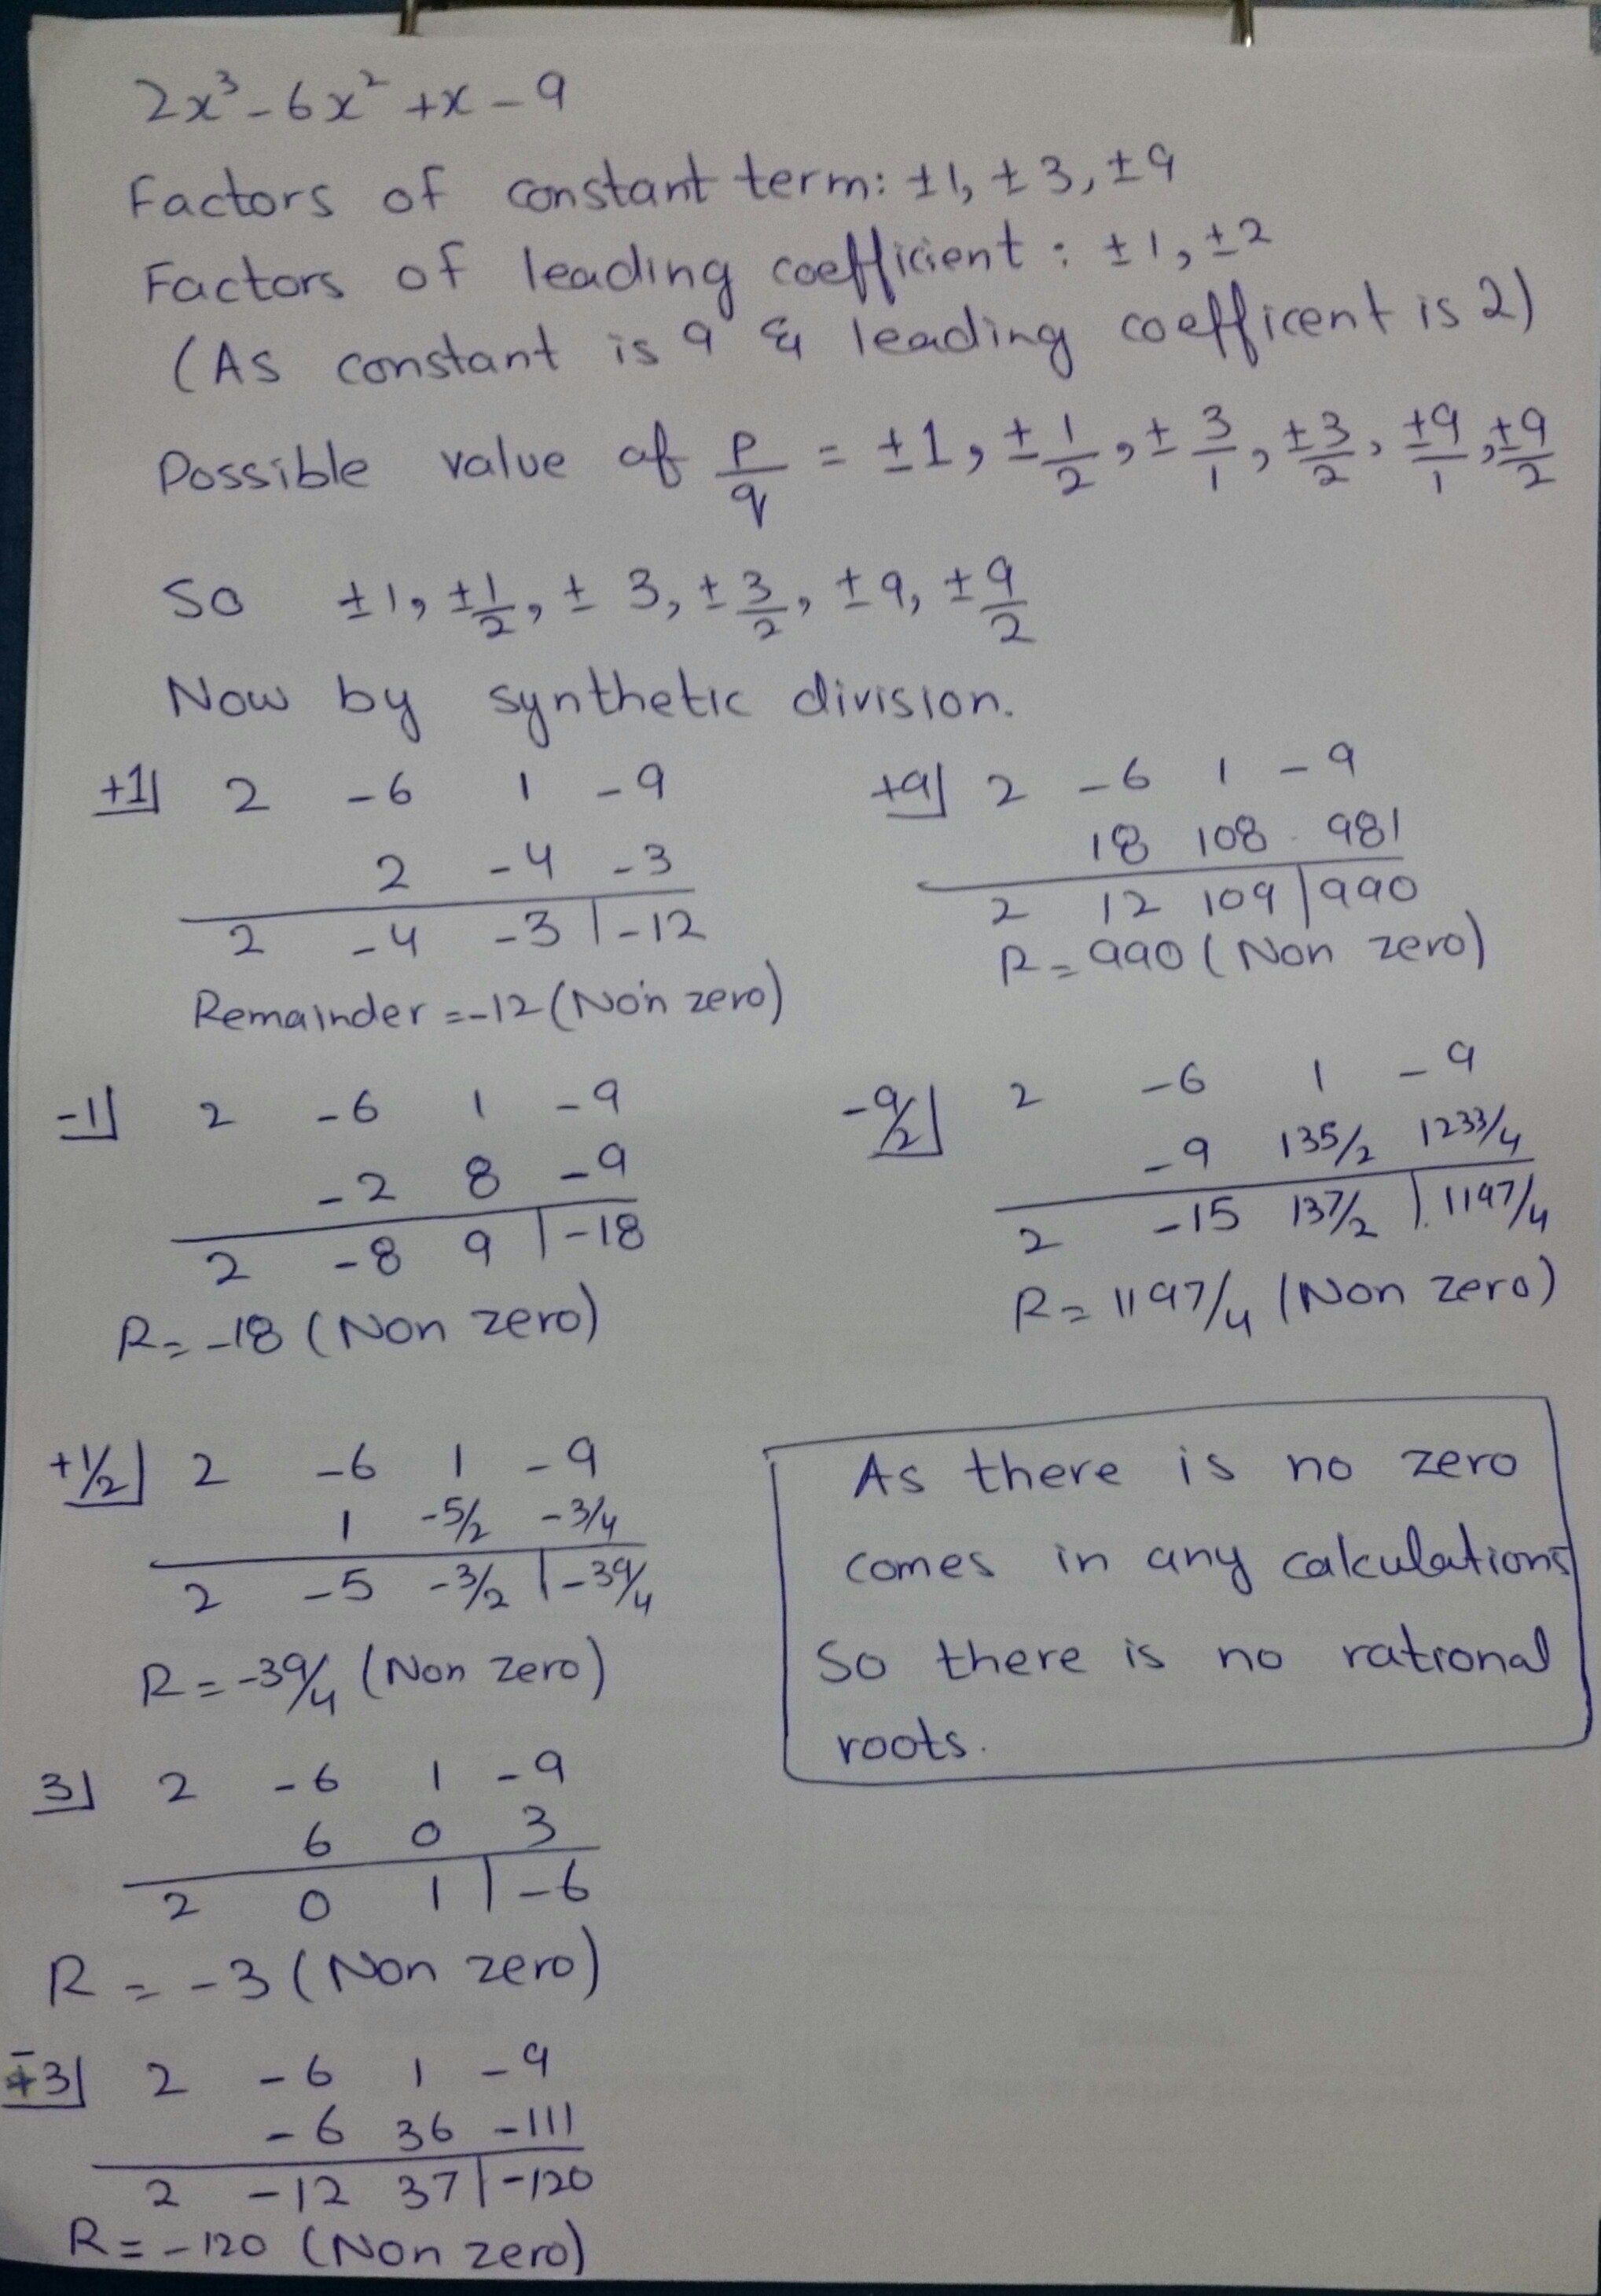 2x³ - 6x² + x - 9
Factors of constant term: ±1, ±3, ±9
Factors of leading coefficient : ±1, ±2
(As constant is 9 & leading coefficent is 2)
Possible value of p/q = ±1, ±1/2, ±3/1, ±3/2, ±9/1, ±9/2
So ±1, ±1/2, ±3, ±3/2, ±9, ±9/2
Now by synthetic division.
+1| 2 -6 1 -9
2 -4 -3
2 -4 -3 | -12
Remainder = -12 (Non zero)
-1| 2 -6 1 -9
-2 8 -9
2 -8 9 | -18
R = -18 (Non zero)
+1/2| 2 -6 1 -9
1 -5/2 -3/4
2 -5 -3/2 | -39/4
R = -39/4 (Non zero)
3| 2 -6 1 -9
6 0 3
2 0 1 | -6
R = -3 (Non zero)
-3| 2 -6 1 -9
-6 36 -111
2 -12 37 | -120
R = -120 (Non zero)
+9| 2 -6 1 -9
18 108 981
2 12 109 | 990
R = 990 (Non zero)
-9/2| 2 -6 1 -9
-9 135/2 1233/4
2 -15 137/2 | 1197/4
R = 1197/4 (Non zero)
As there is no zero
comes in any calculations
So there is no rational
roots.